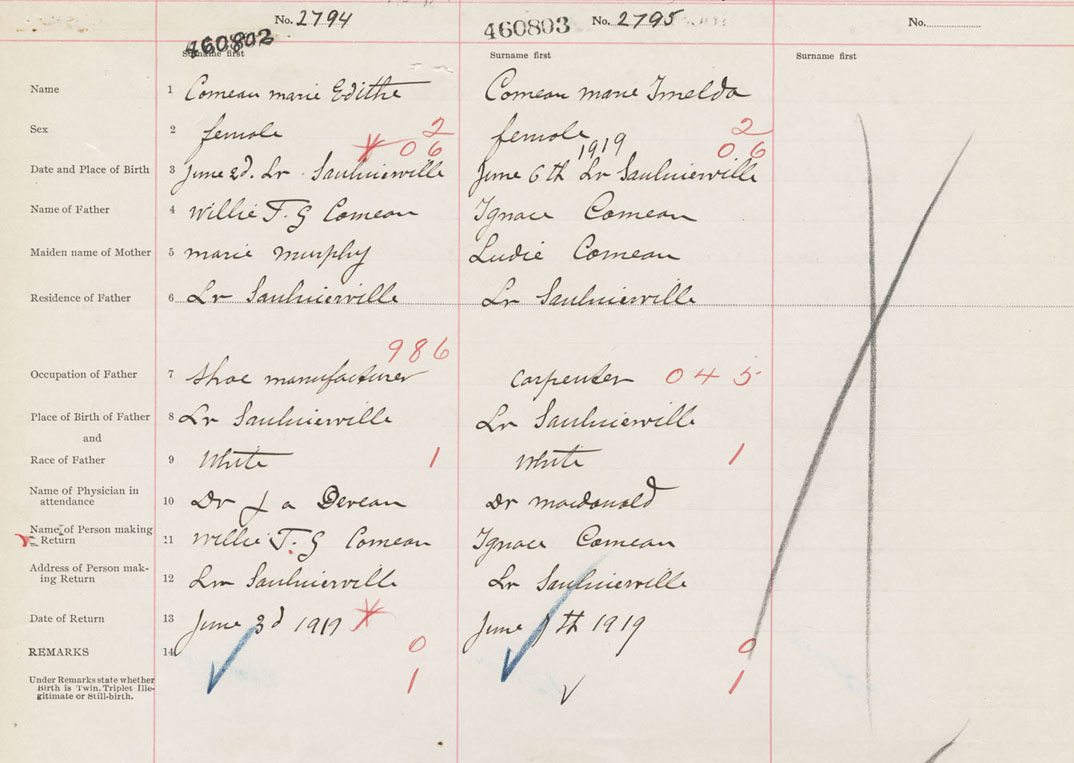 No. 2794
460803 No. 2795
No.
460802
Surname first
Surname first
Surname first
Name 1 Comeau marie Edithe
Comeau marie Imelda
Sex 2 female 2
female 2
1919
* 06
06
Date and Place of Birth 3 June 2d. Lr Saulnierville
June 6th Lr Saulnierville
Name of Father 4 Willie T. G Comeau
Ignace Comeau
Maiden name of Mother 5 marie murphy
Ludie Comeau
Residence of Father 6 Lr Saulnierville
Lr Saulnierville
986
Occupation of Father 7 Shoe manufacturer
Carpenter 045
Place of Birth of Father 8 Lr Saulnierville
Lr Saulnierville
and
Race of Father 9 White 1
White 1
Name of Physician in
attendance 10 Dr
Dr macdonald
Name of Person making
Return 11 Willie T. G Comeau
Ignace Comeau
Address of Person mak-
ing Return 12 Lr Saulnierville
Lr Saulnierville
Date of Return 13 June 3d *
June th 1919
REMARKS 14 0
0
Under Remarks state whether
Birth is Twin, Triplet Ille-
gitimate or Still-birth.
1
1